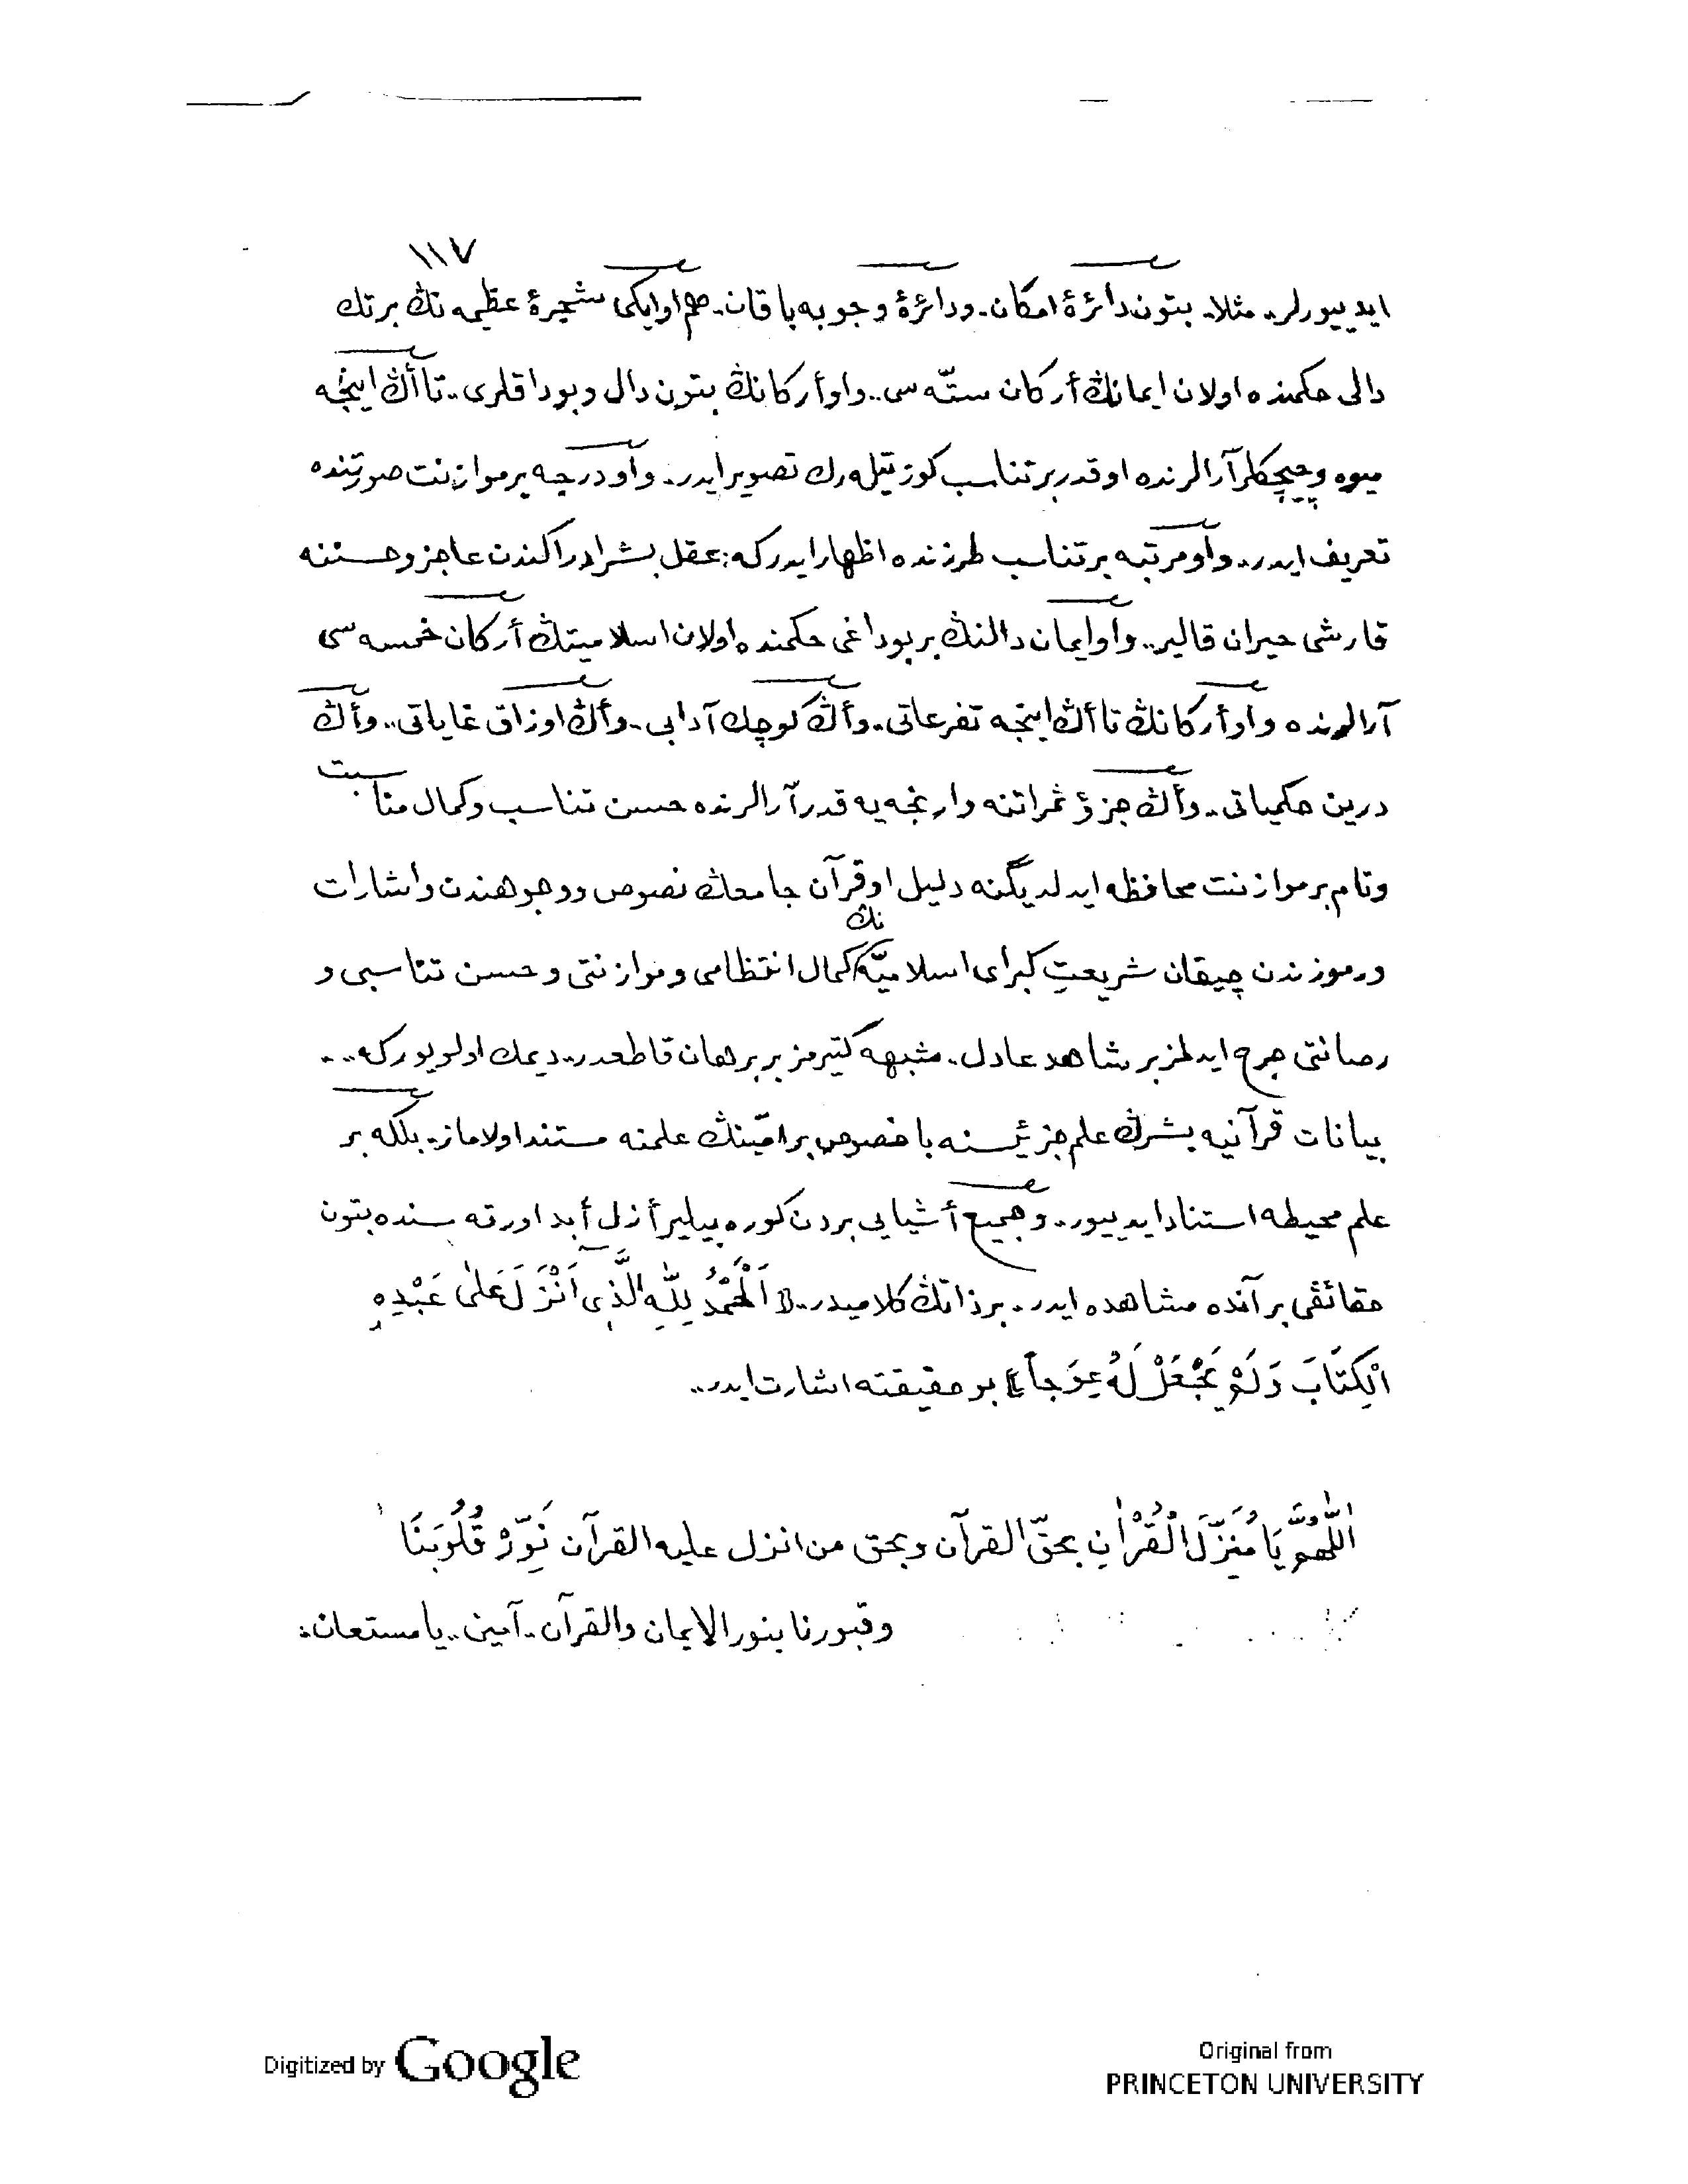 ١١٧
ايدييورلر.. مثلا. بتون دائرۀ امكان. ودائرۀ وجوبه باقان. هم او ايكى شجرۀ عظيمه نڭ بر تك
دالى حكمنده اولان ايمانڭ أركان ستّه سى.. واو أركانڭ بتون دال وبوداقلرى.. تا أڭ اينجه
ميوه وچيچكلر آرالرنده او قدر بر تناسب كوزتيله رك تصوير ايدر. واو درجه بر موازنت صورتنده
تعريف ايدر.. واو مرتبه بر تناسب طرزنده اظهار ايدر كه: عقل بشر ادراكندن عاجز وحسننه
قارشى حيران قالير.. واو ايمان دالنڭ بر بوداغى حكمنده اولان اسلاميتڭ أركان خمسه سى
آرالرنده واو أركانڭ تا أڭ اينجه تفرعاتى.. وأڭ كوچك آدابى.. وأڭ اوزاق غاياتى.. وأڭ
درين حكمياتى.. وأڭ جزؤ ثمراتنه وارنجه يه قدر آرالرنده حسن تناسب وكمال مناسبت
وتام بر موازنت محافظه ايدلديگنه دليل او قرآن جامعڭ نصوص ووجوهندن واشارات
ورموزندن چيقان شريعتِ كبراى اسلاميّه نڭ كمال انتظامى وموازنتى وحسن تناسبى و
رصانتى جرح ايدلمز بر شاهد عادل. شبهه كتيرمز بر برهان قاطعدر.. ديمك اولويور كه...
بيانات قرآنيه بشرڭ علم جزئيسنه باخصوص بر امّينڭ علمنه مستند اولاماز. بلكه بر
علم محيطه استناد ايدييور.. وجميع أشيايى بردن كوره بيلير أزل أبد اورته سنده بتون
حقائقى بر آنده مشاهده ايدر.. بر ذاتڭ كلاميدر.. ﴿ اَلْحَمْدُ لِلّٰهِ الَّذِى اَنْزَلَ عَلٰى عَبْدِهِ
الْكِتَابَ وَلَمْ يَجْعَلْ لَهُ عِوَجاً ﴾ بو حقيقته اشارت ايدر..
اَللّٰهُمَّ يَا مُنَزِّلَ الْقُرْاٰنِ بحقّ القرآن وبحق من انزل عليه القرآن نَوِّرْ قُلُوبَنَا
وقبورنا بنور الايمان والقرآن. آمين.. يا مستعان:
Digitized by Google
Original from
PRINCETON UNIVERSITY